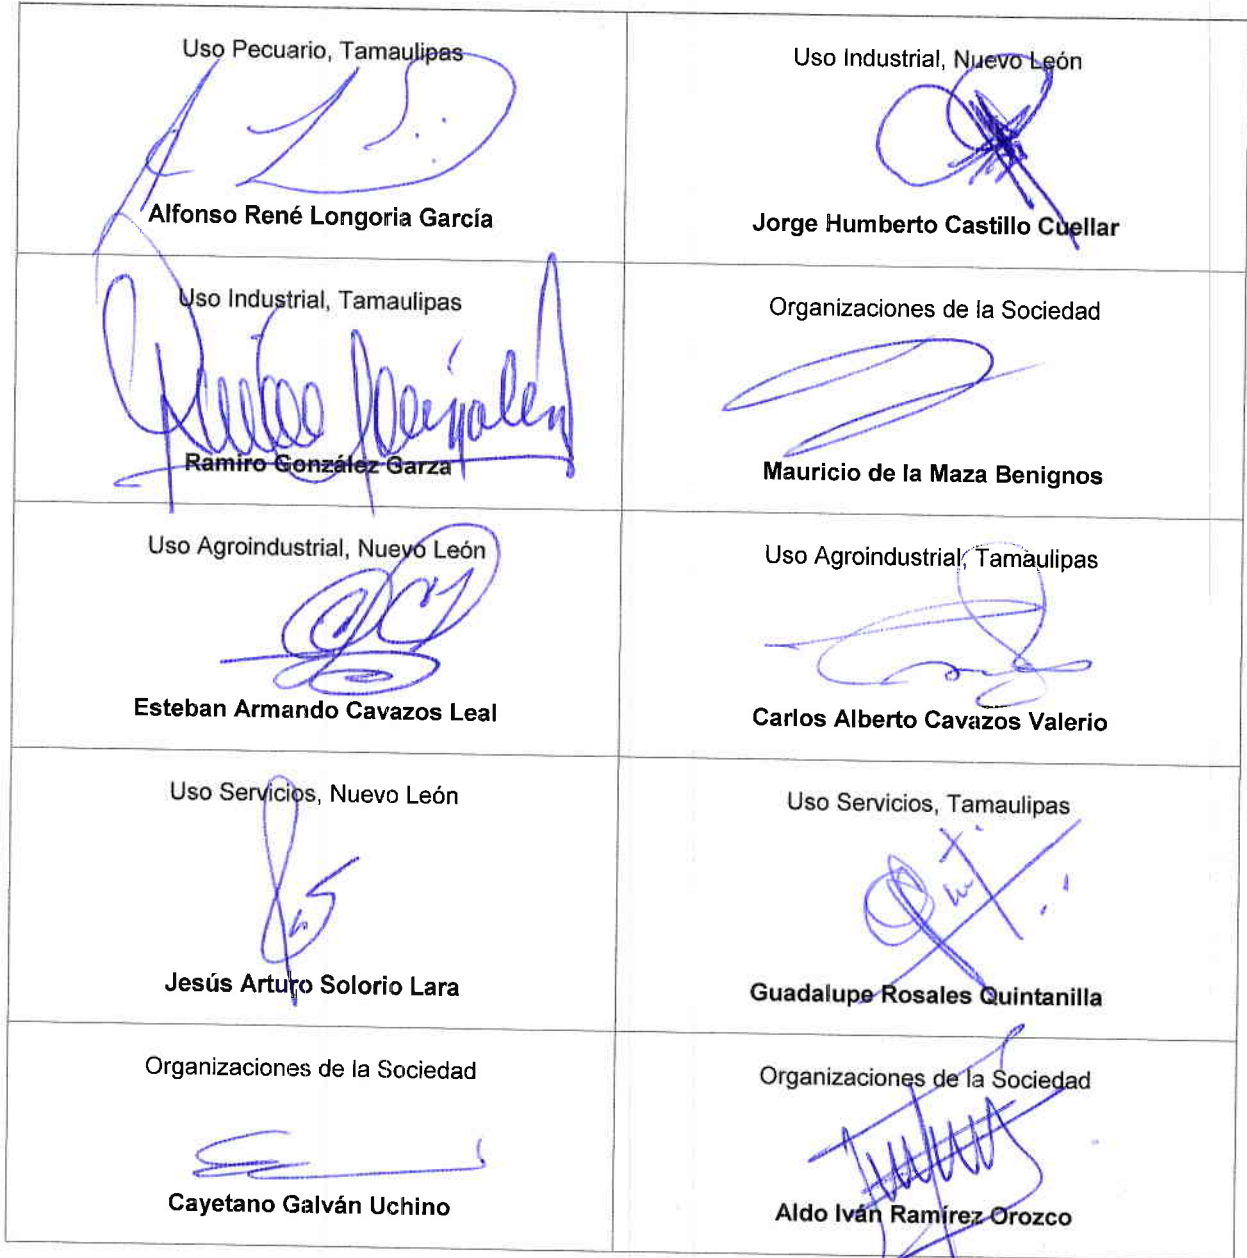 Uso Pecuario, Tamaulipas
Alfonso René Longoria García
Uso Industrial, Nuevo León
Jorge Humberto Castillo Cuellar
Uso Industrial, Tamaulipas
Ramiro González Garza
Organizaciones de la Sociedad
Mauricio de la Maza Benignos
Uso Agroindustrial, Nuevo León
Esteban Armando Cavazos Leal
Uso Agroindustrial, Tamaulipas
Carlos Alberto Cavazos Valerio
Uso Servicios, Nuevo León
Jesús Arturo Solorio Lara
Uso Servicios, Tamaulipas
Guadalupe Rosales Quintanilla
Organizaciones de la Sociedad
Cayetano Galván Uchino
Organizaciones de la Sociedad
Aldo Iván Ramírez Orozco